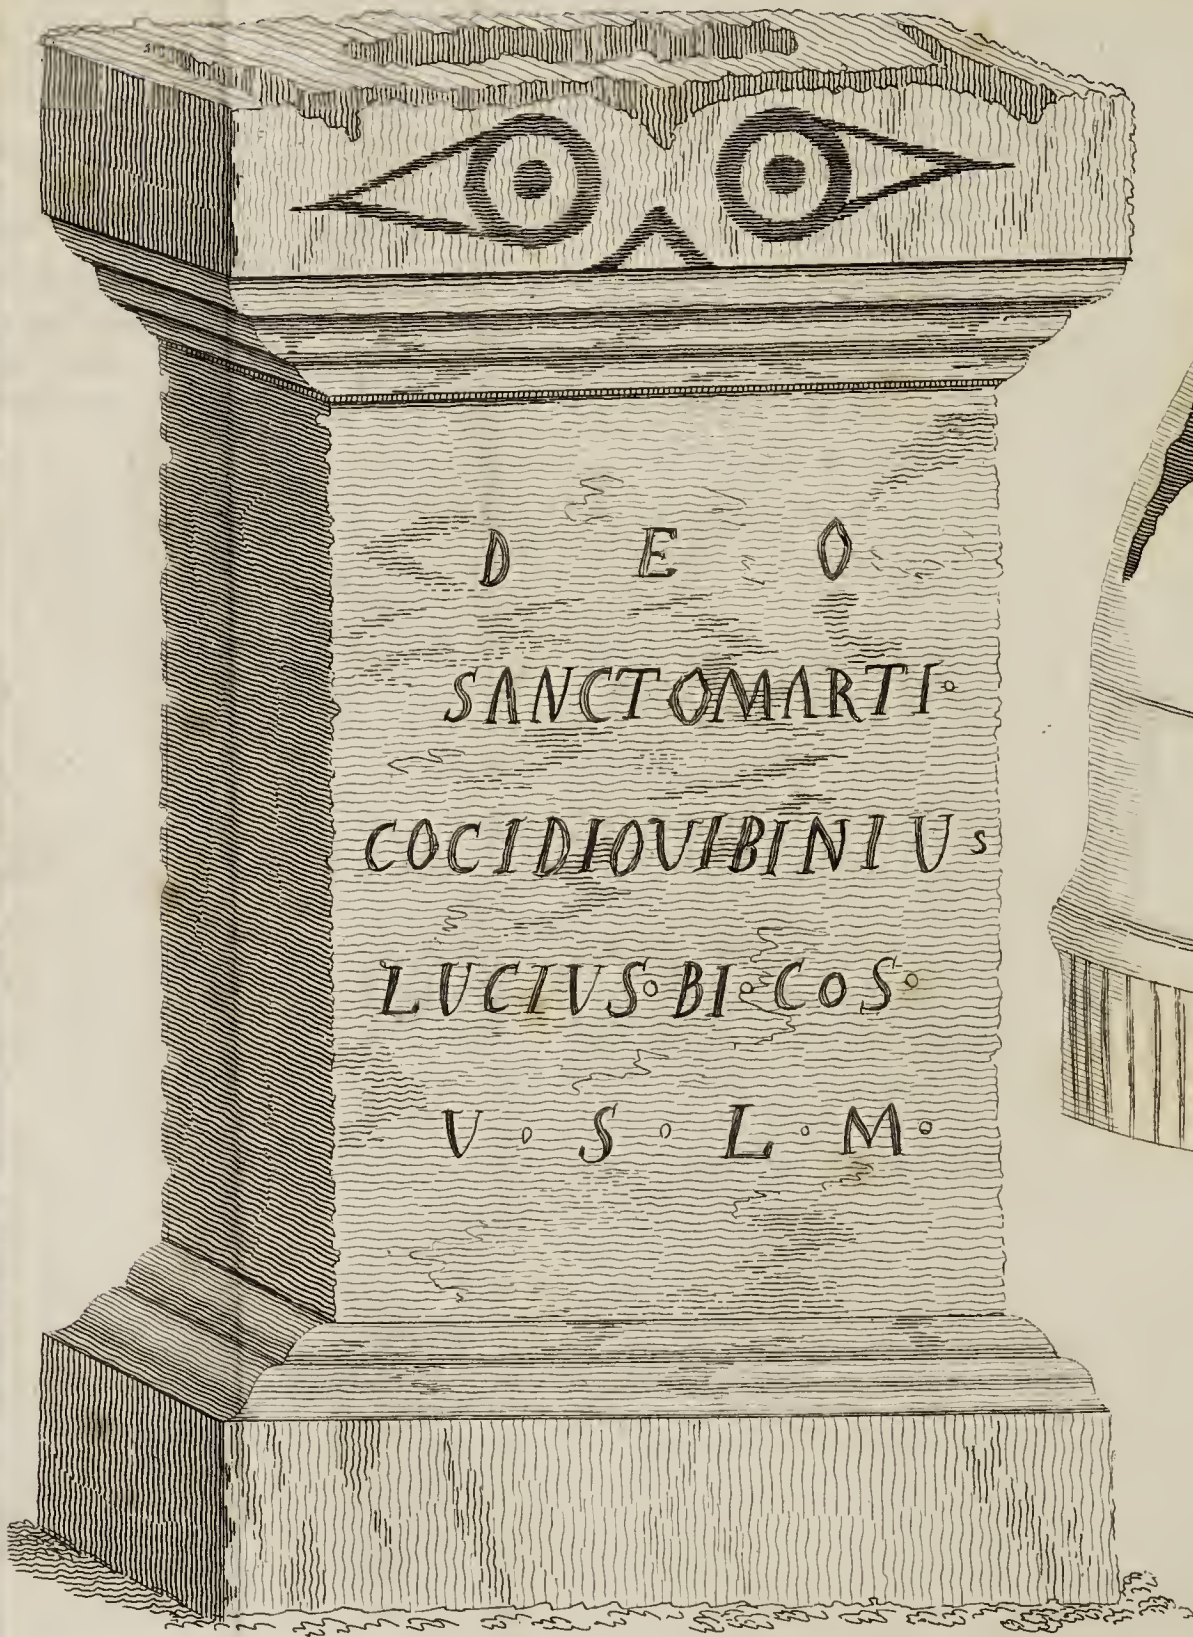 D E O
SANCTOMARTI·
COCIDIOVIBINIUS
LUCIUS·BI·COS·
V·S·L·M·